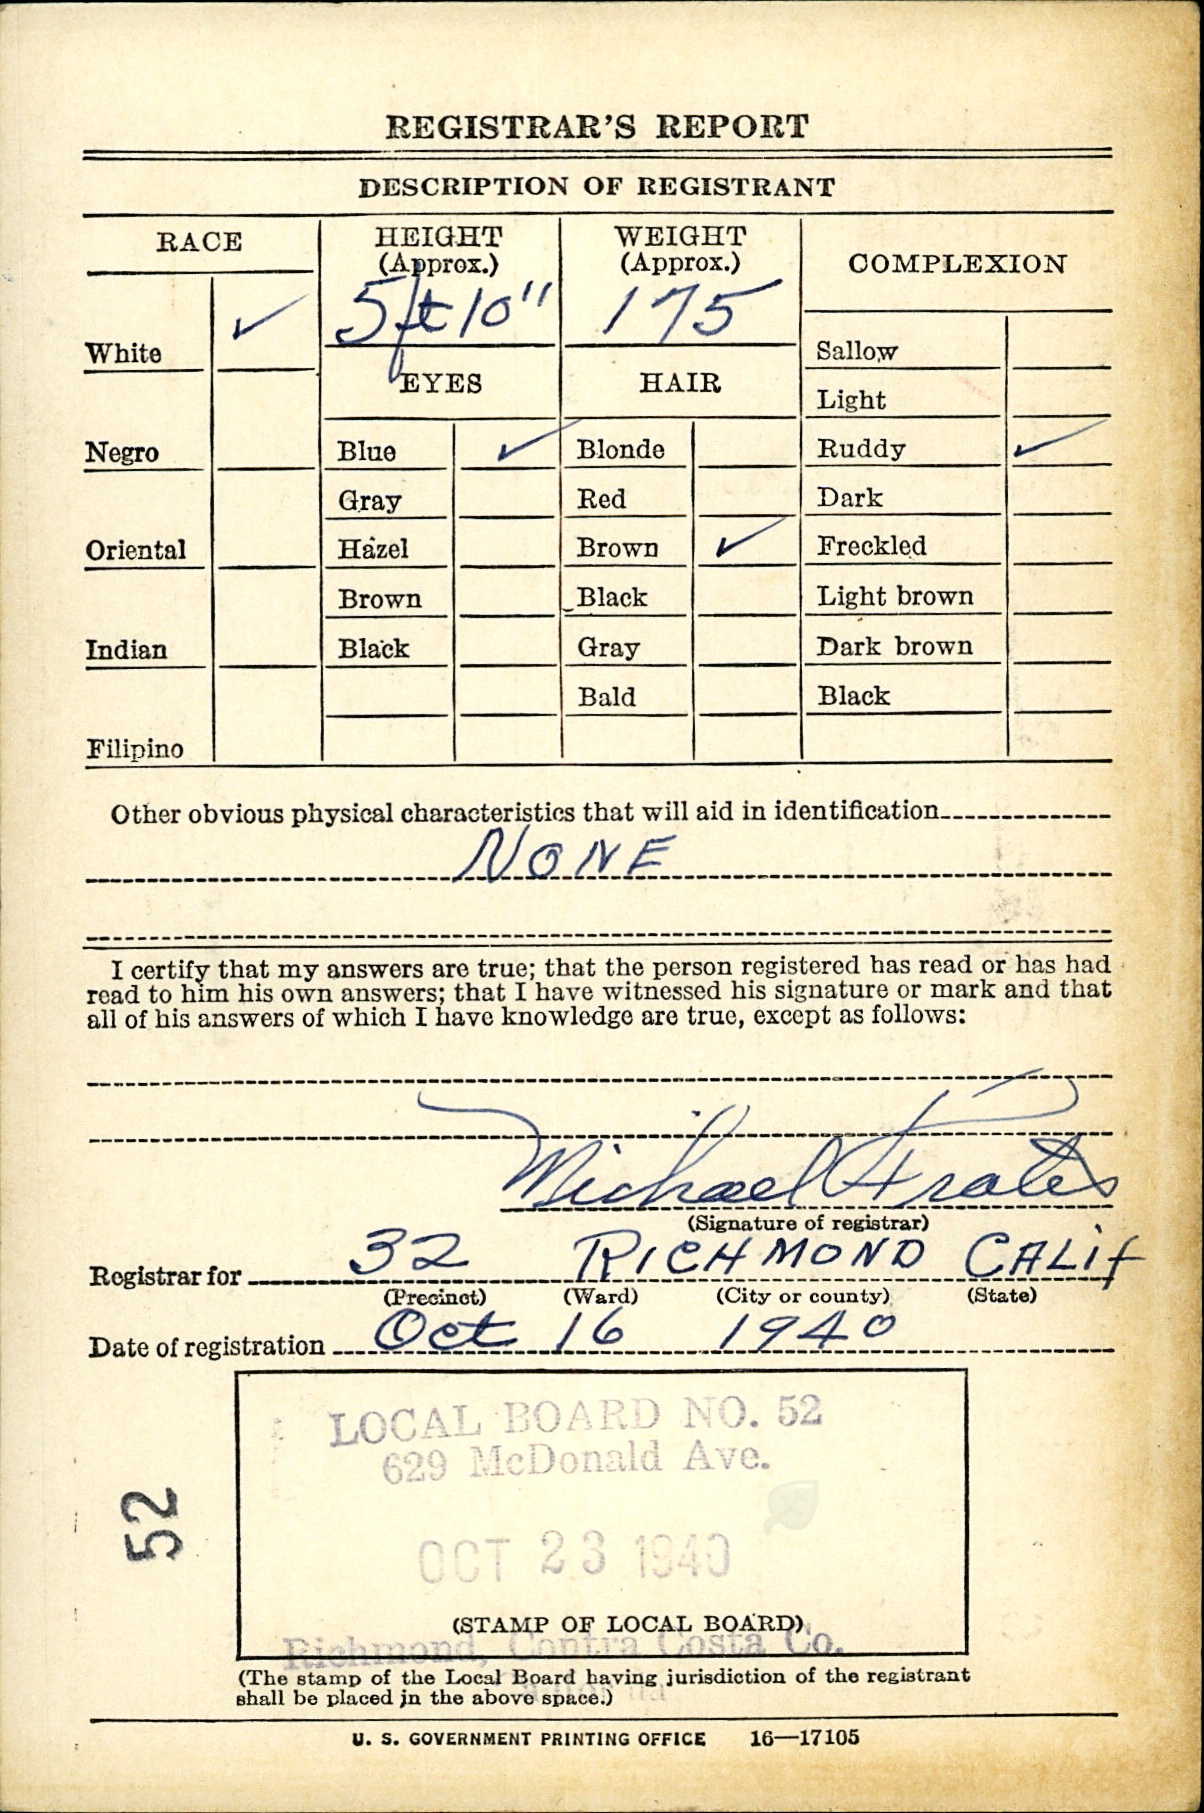 REGISTRAR'S REPORT
DESCRIPTION OF REGISTRANT
RACE
HEIGHT
(Approx.)
5 ft 10"
WEIGHT
(Approx.)
175
COMPLEXION
White ✓
Negro
Oriental
Indian
Filipino
EYES
Blue ✓
Gray
Hazel
Brown
Black
HAIR
Blonde
Red
Brown ✓
Black
Gray
Bald
Sallow
Light
Ruddy ✓
Dark
Freckled
Light brown
Dark brown
Black
Other obvious physical characteristics that will aid in identification
NONE
I certify that my answers are true; that the person registered has read or has had
read to him his own answers; that I have witnessed his signature or mark and that
all of his answers of which I have knowledge are true, except as follows:
Michael Frates
(Signature of registrar)
Registrar for 32 RICHMOND CALIF
(Precinct) (Ward) (City or county) (State)
Date of registration Oct 16 1940
LOCAL BOARD NO. 52
629 McDonald Ave.
52
OCT 23 1940
(STAMP OF LOCAL BOARD)
Richmond, Contra Costa Co.
California
(The stamp of the Local Board having jurisdiction of the registrant
shall be placed in the above space.)
U. S. GOVERNMENT PRINTING OFFICE 16—17105